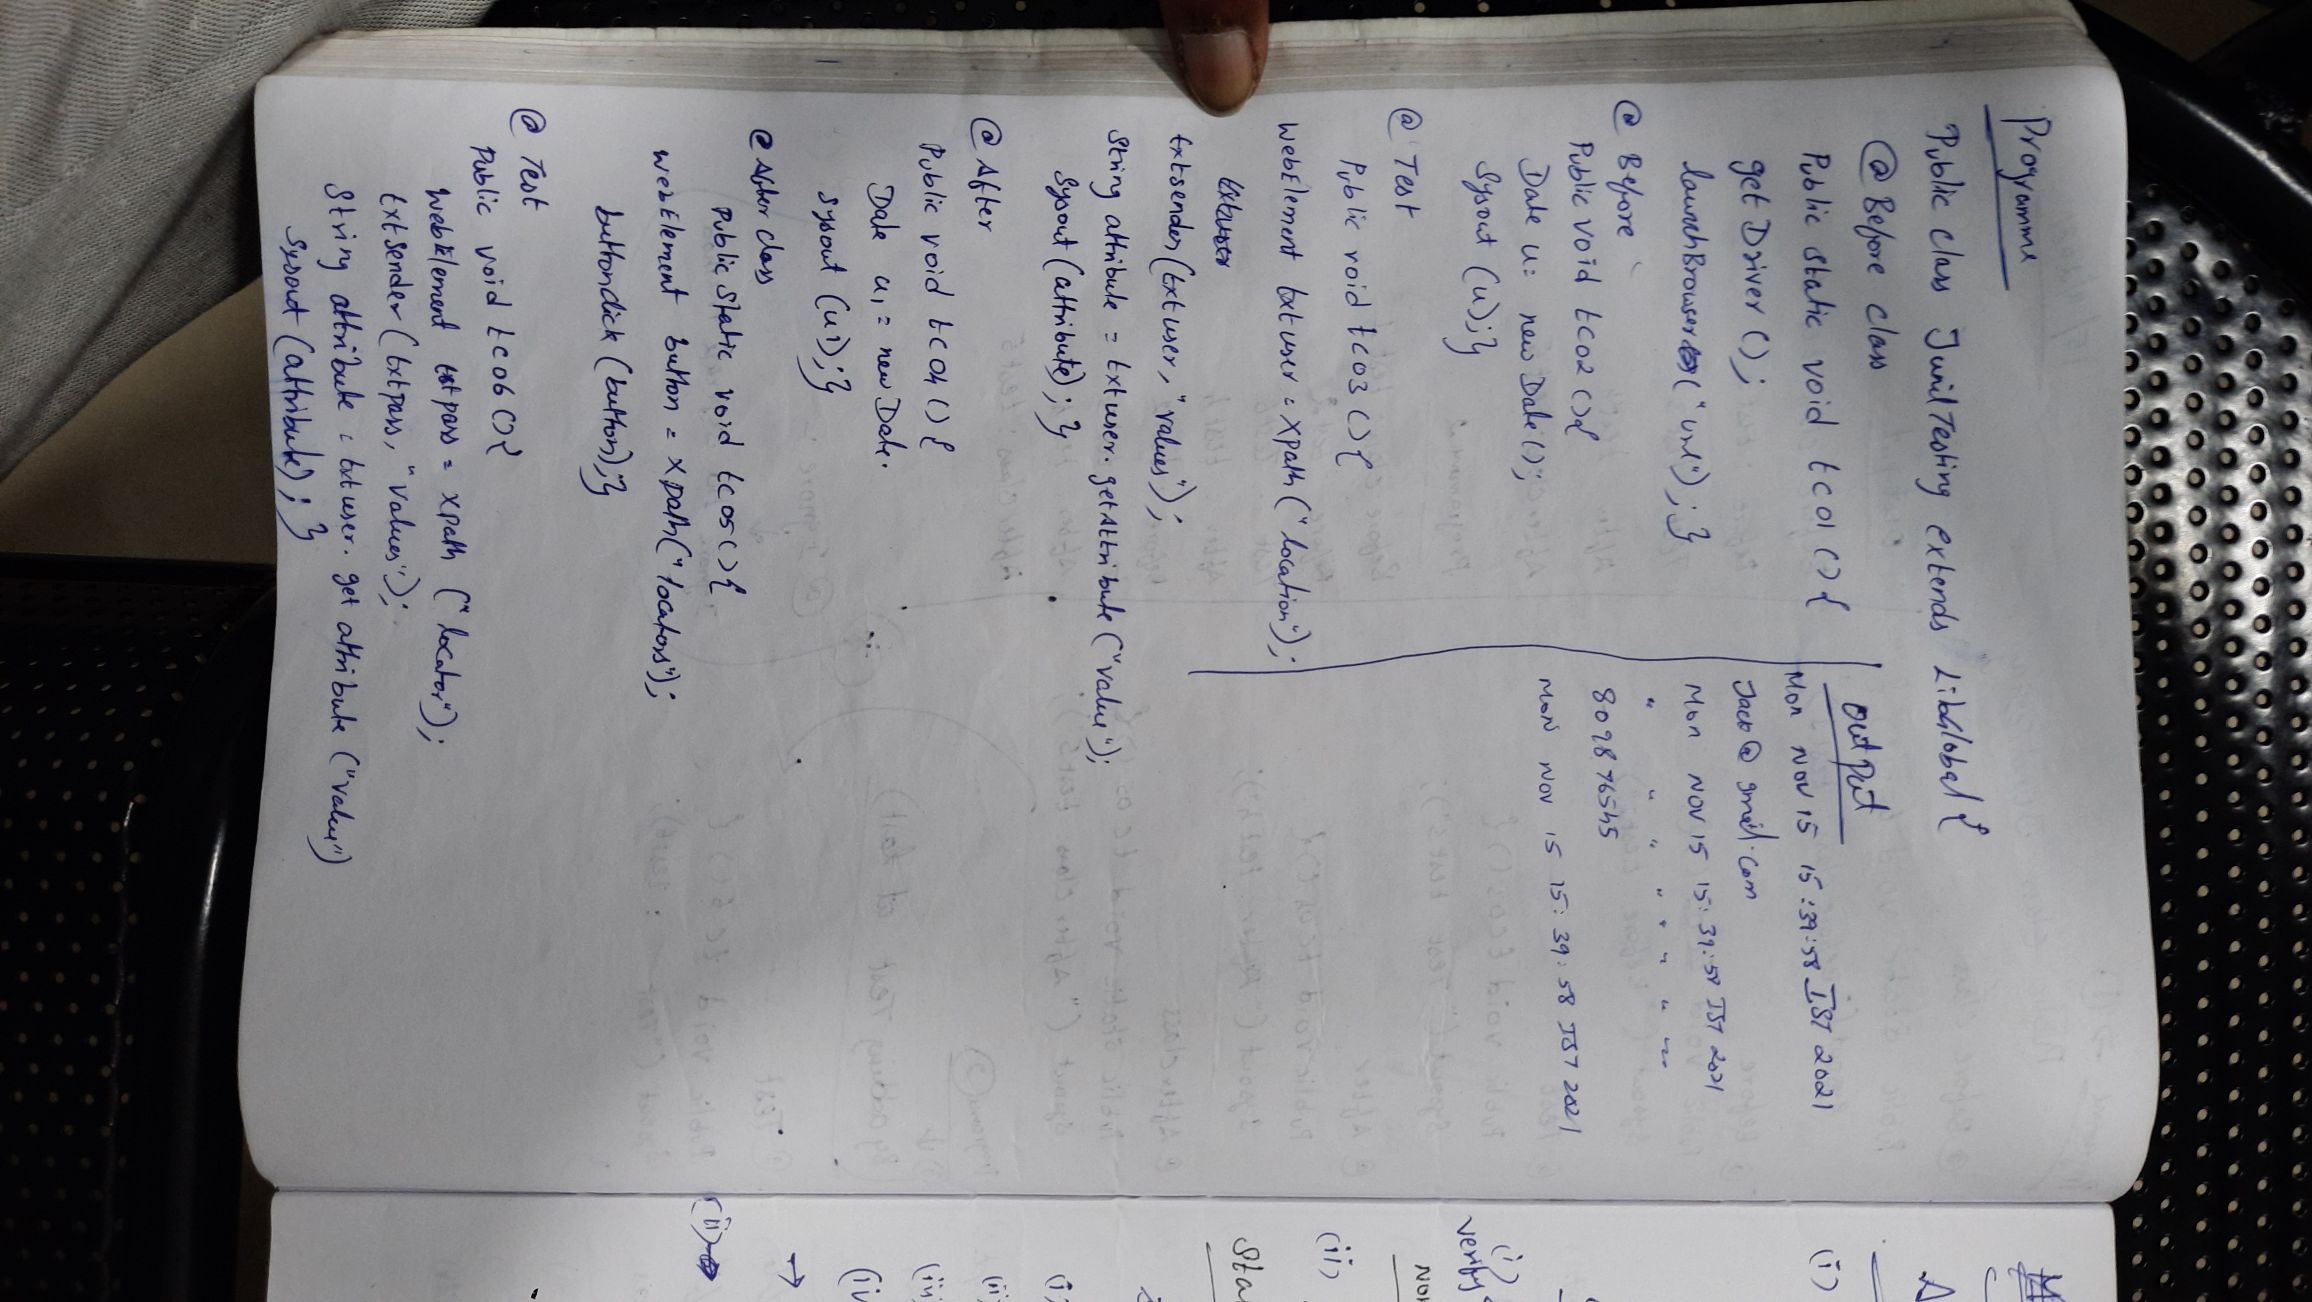 Programme
Public class JunitTesting extends LibGlobal {
@ Before class
Public static void tc01 () {
get Driver ();
launchBrowser ("url"); }
@ Before
Public void tc02 () {
Date u = new Date ();
Sysout (u); }
@ Test
Public void tc03 () {
WebElement txtuser = xpath ("location");
txtsender (txtuser, "values");
String attribute = txtuser. getAttribute ("value");
Sysout (attribute); }
@ After
Public void tc04 () {
Date u1 = new Date.
Sysout (u1); }
@ After class
Public static void tc05 () {
WebElement button = xpath ("locators");
buttonclick (button); }
@ Test
Public void tc06 () {
WebElement txtpass = xpath ("locator");
txtsender (txtpass, "values");
String attribute = txtuser. get attribute ("value")
Sysout (attribute); }
OutPut
Mon Nov 15 15:39:58 IST 2021
Jacob@gmail.com
Mon Nov 15 15:39:58 IST 2021
" " " " " " "
809876545
Mon Nov 15 15:39:58 IST 2021
(i)
(ii)
(i)
verify
(i)
(ii)
(iii)
(iv
→
(ii)